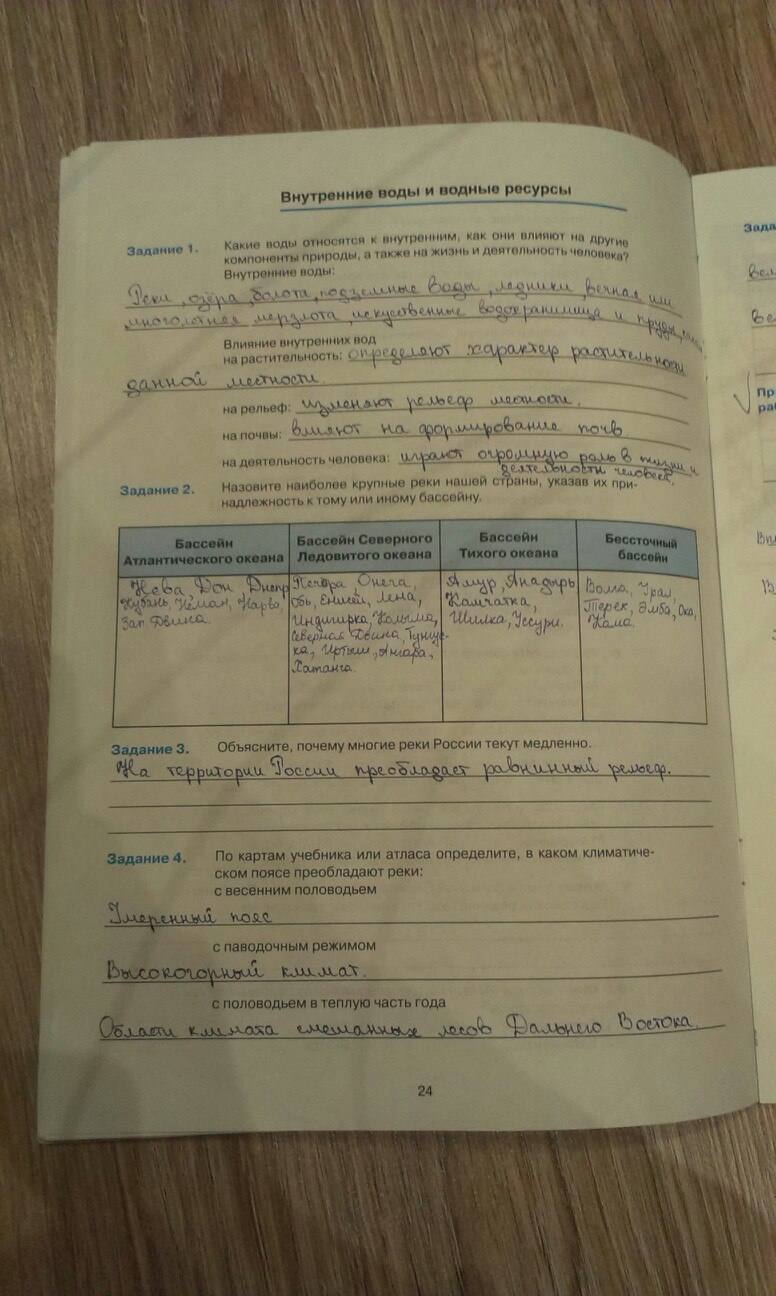 Внутренние воды и водные ресурсы
Задание 1. Какие воды относятся к внутренним, как они влияют на другие
компоненты природы, а также на жизнь и деятельность человека?
Внутренние воды:
Реки, озёра, болота, подземные воды, ледники, вечная или
многолетняя мерзлота, искуственные водохранилища и пруды,
Влияние внутренних вод
на растительность: определяют характер растительности
данной местности.
на рельеф: изменяют рельеф местности.
на почвы: влияют на формирование почв
на деятельность человека: играют огромную роль в жизни и
деятельности человека.
Задание 2. Назовите наиболее крупные реки нашей страны, указав их при-
надлежность к тому или иному бассейну.
Бассейн
Атлантического океана
Бассейн Северного
Ледовитого океана
Бассейн
Тихого океана
Бессточный
бассейн
Нева, Дон, Днепр
Кубань, Неман, Нарва,
Зап. Двина.
Печора, Онега,
Обь, Енисей, Лена,
Индигирка, Колыма,
Северная Двина, Тунгус-
ка, Иртыш, Ангара,
Хатанга.
Амур, Анадырь
Камчатка,
Шилка, Уссури.
Волга, Урал,
Терек, Эмба, Ока,
Кама.
Задание 3. Объясните, почему многие реки России текут медленно.
На территории России преобладает равнинный рельеф.
Задание 4. По картам учебника или атласа определите, в каком климатиче-
ском поясе преобладают реки:
с весенним половодьем
Умеренный пояс
с паводочным режимом
Высокогорный климат.
с половодьем в теплую часть года
Области климата смешанных лесов Дальнего Востока.
24